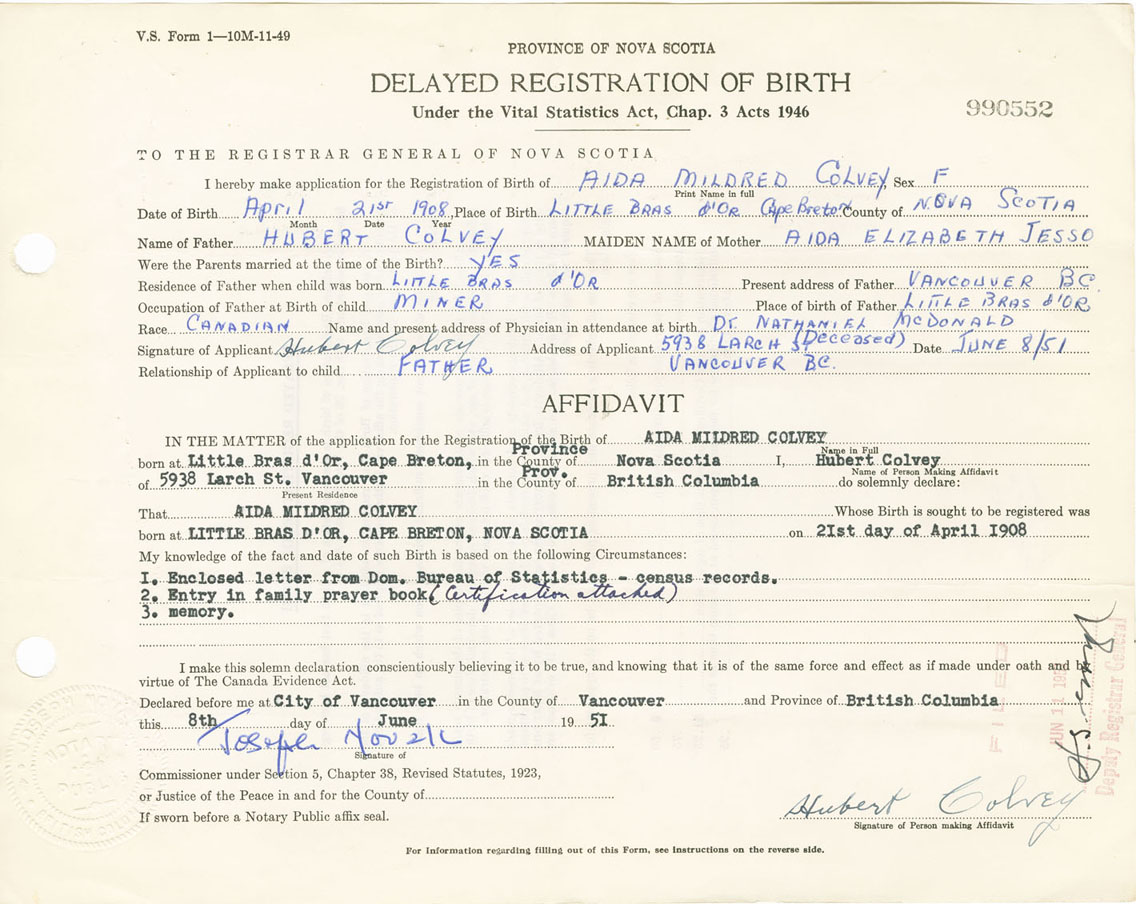 V.S. Form 1—10M-11-49
PROVINCE OF NOVA SCOTIA
DELAYED REGISTRATION OF BIRTH
Under the Vital Statistics Act, Chap. 3 Acts 1946
990552
TO THE REGISTRAR GENERAL OF NOVA SCOTIA
I hereby make application for the Registration of Birth of AIDA MILDRED COLVEY, Sex F
Print Name in full
Date of Birth April 21st 1908, Place of Birth LITTLE BRAS d'OR Cape Breton County of NOVA SCOTIA
Month Date Year
Name of Father HUBERT COLVEY MAIDEN NAME of Mother AIDA ELIZABETH JESSO
Were the Parents married at the time of the Birth? YES
Residence of Father when child was born LITTLE BRAS d'OR Present address of Father VANCOUVER BC.
Occupation of Father at Birth of child MINER Place of birth of Father LITTLE BRAS d'OR
Race CANADIAN Name and present address of Physician in attendance at birth Dr. NATHANIEL McDONALD
(Deceased)
Signature of Applicant Hubert Colvey Address of Applicant 5938 LARCH ST Date JUNE 8/51
Relationship of Applicant to child FATHER VANCOUVER BC.
AFFIDAVIT
IN THE MATTER of the application for the Registration of the Birth of AIDA MILDRED COLVEY
Province Name in Full
born at Little Bras d'Or, Cape Breton, in the County of Nova Scotia I, Hubert Colvey
Prov. Name of Person Making Affidavit
of 5938 Larch St. Vancouver in the County of British Columbia do solemnly declare:
Present Residence
That AIDA MILDRED COLVEY Whose Birth is sought to be registered was
born at LITTLE BRAS D'OR, CAPE BRETON, NOVA SCOTIA on 2Ist day of April I908
My knowledge of the fact and date of such Birth is based on the following Circumstances:
I. Enclosed letter from Dom. Bureau of Statistics - census records.
2. Entry in family prayer book (Certification attached)
3. memory.
I make this solemn declaration conscientiously believing it to be true, and knowing that it is of the same force and effect as if made under oath and by
virtue of The Canada Evidence Act.
Declared before me at City of Vancouver in the County of Vancouver and Province of British Columbia
this 8th day of June 19 5I
Joseph Novak
Signature of
Commissioner under Section 5, Chapter 38, Revised Statutes, 1923,
or Justice of the Peace in and for the County of
If sworn before a Notary Public affix seal.
Hubert Colvey
Signature of Person making Affidavit
JUN 11 195
Deputy Registrar General
For Information regarding filling out of this Form, see instructions on the reverse side.